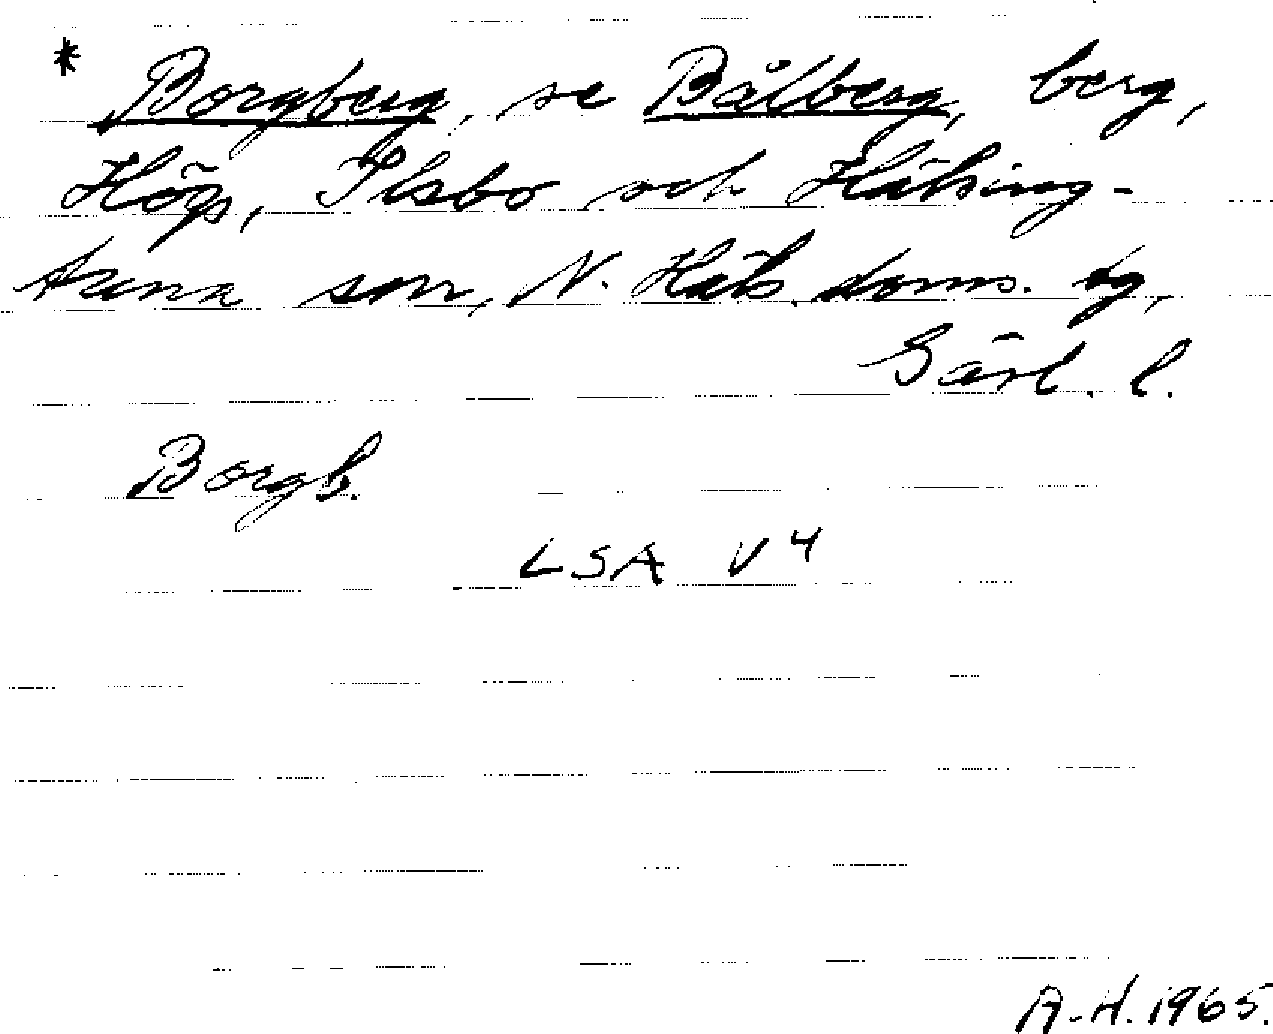 * Borgberg, se Bålberg, berg,
Hög, Ilsbo och Hälsing-
tuna snr, N. Häls. doms. tg,
Gävl. l.
Borgb.
LSA V4
A-H. 1965.